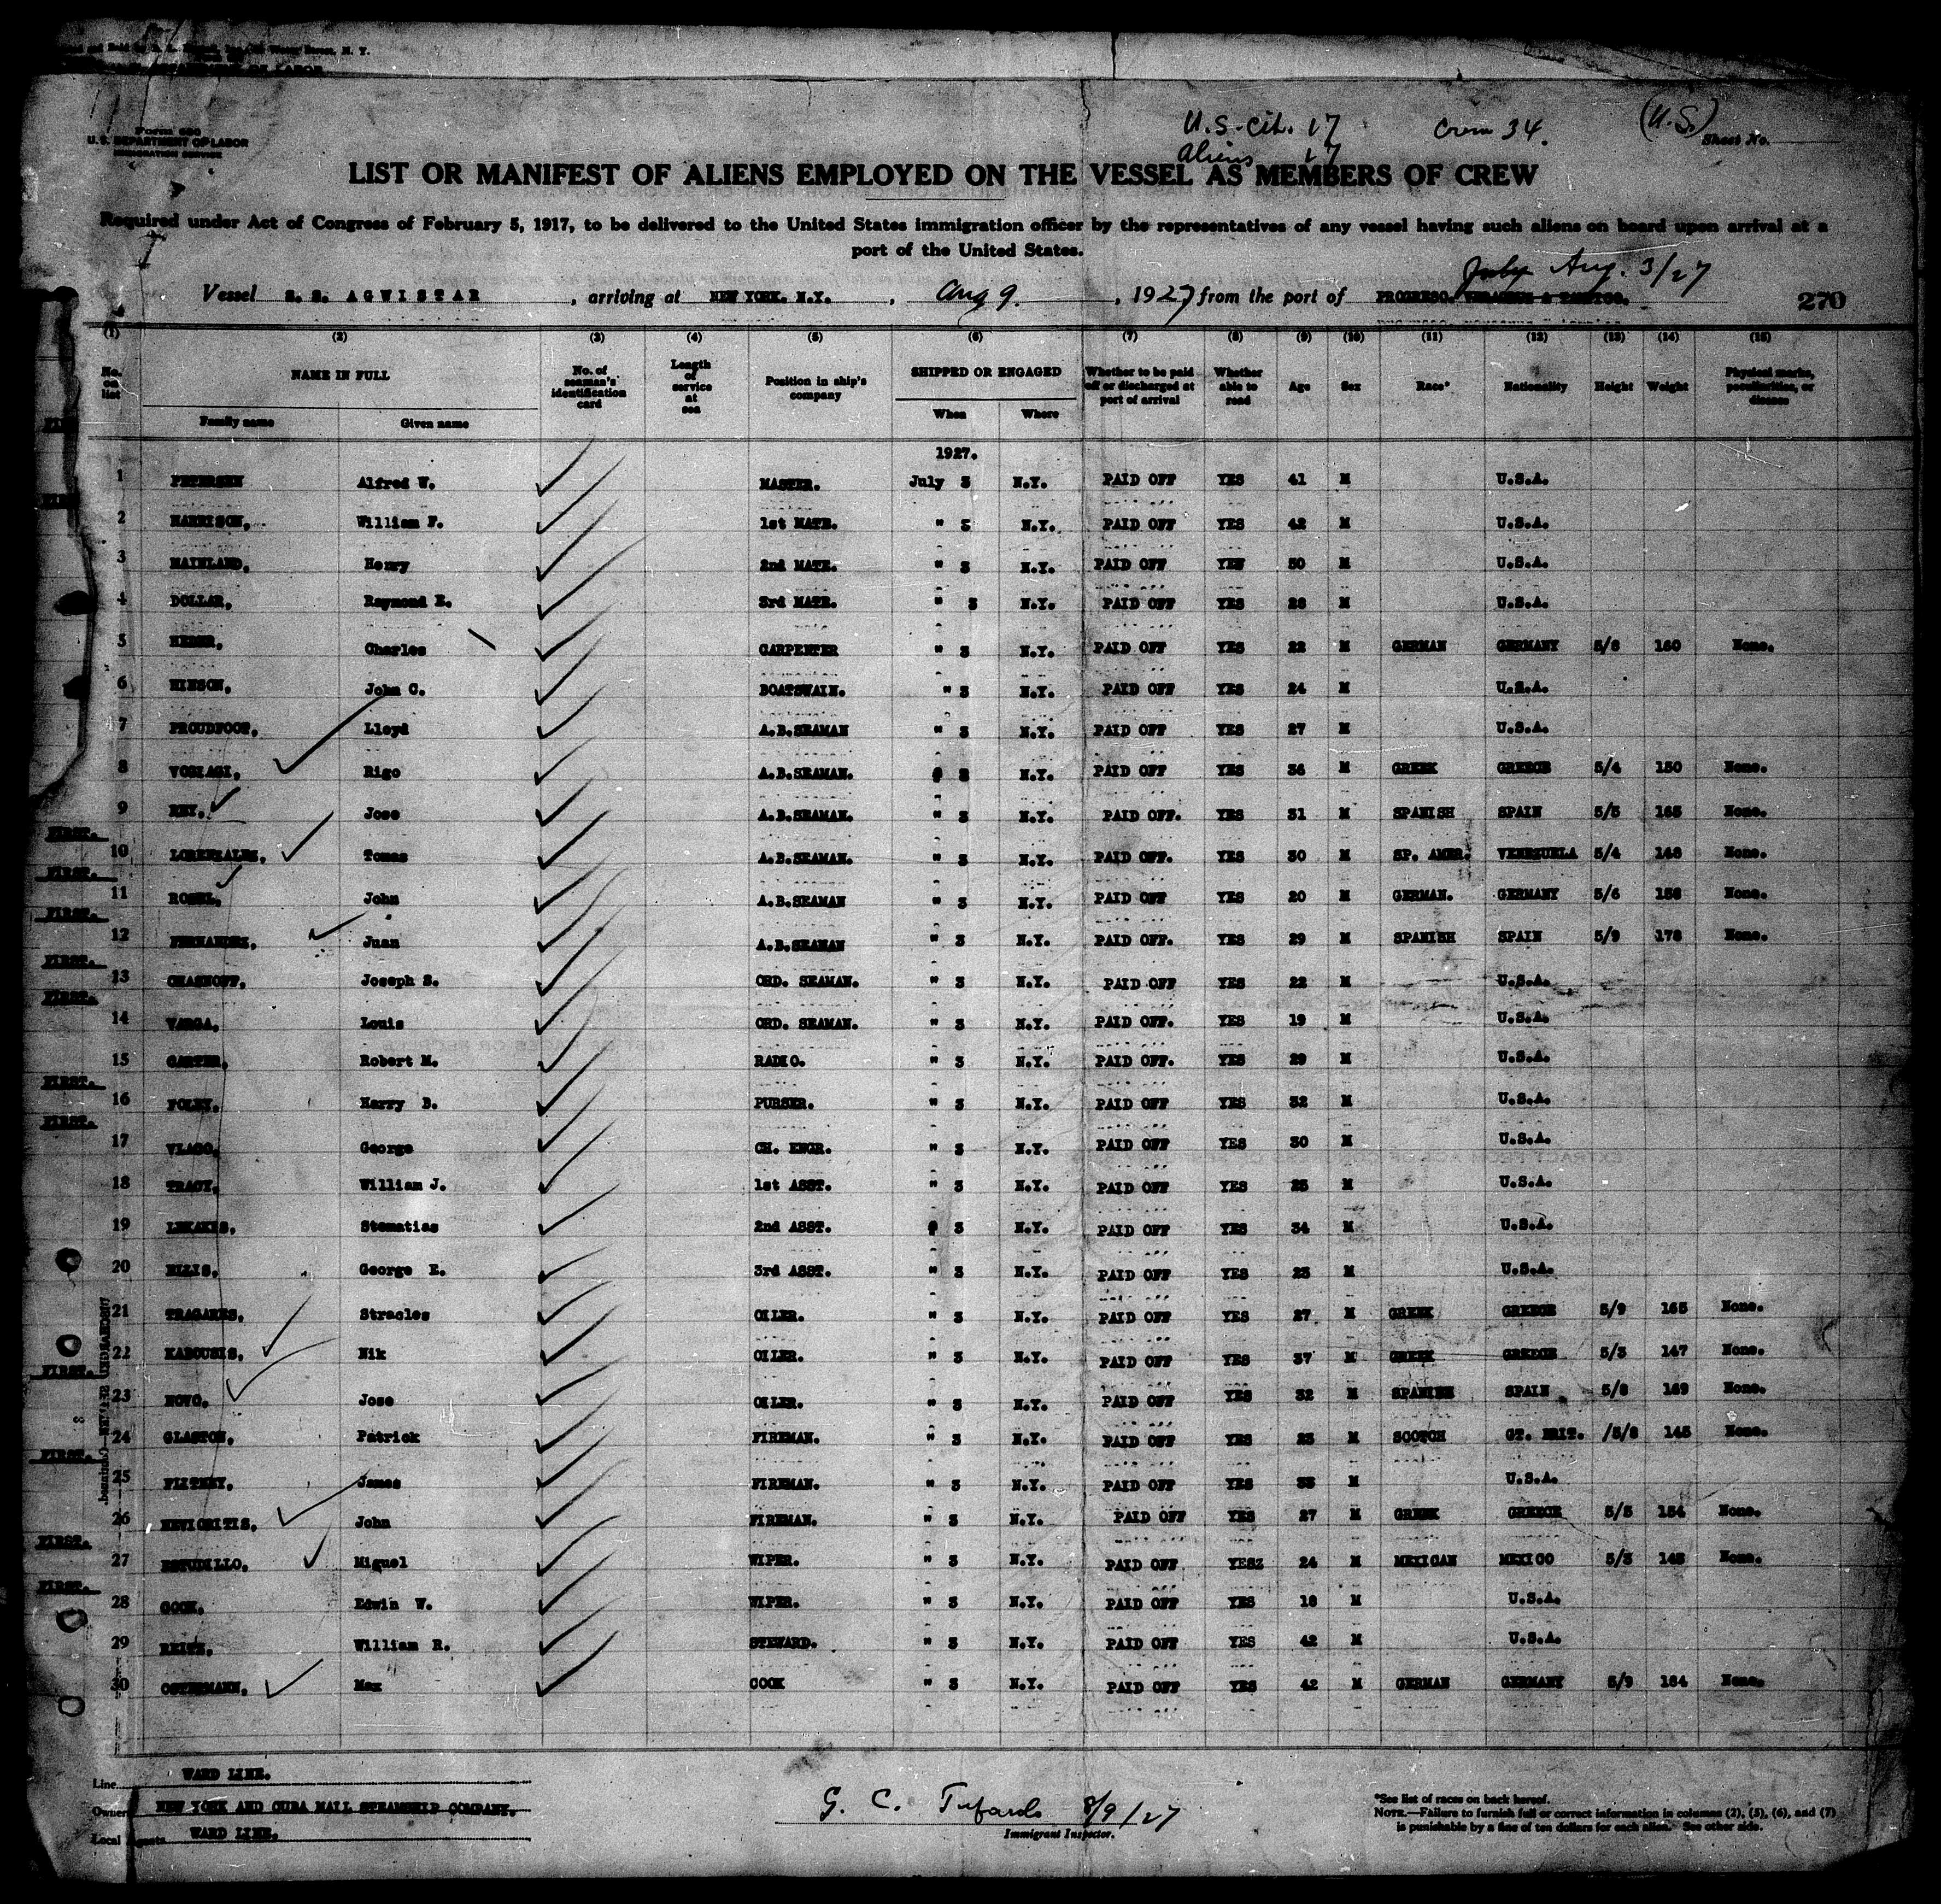 U.S. DEPARTMENT OF LABOR
U.S.-Cit. 17 Crew 34. (U.S.)
Aliens 17 Sheet No.
LIST OR MANIFEST OF ALIENS EMPLOYED ON THE VESSEL AS MEMBERS OF CREW
Required under Act of Congress of February 5, 1917, to be delivered to the United States immigration officer by the representatives of any vessel having such aliens on board upon arrival at a
port of the United States.
July Aug. 3/27
Vessel S. S. AGWISTAR, arriving at NEW YORK. N.Y., Aug 9., 1927 from the port of PROGRESO. 270
(1) (2) (3) (4) (5) (6) (7) (8) (9) (10) (11) (12) (13) (14) (15)
No. on list NAME IN FULL No. of seaman's identification card Length of service at sea Position in ship's company SHIPPED OR ENGAGED Whether to be paid off or discharged at port of arrival Whether able to read Age Sex Race* Nationality Height Weight Physical marks, peculiarities, or disease
Family name Given name When Where
1927.
1 PETERSEN Alfred W. MASTER. July 3 N.Y. PAID OFF YES 41 M U.S.A.
2 HARRISON, William F. 1st MATE. " 3 N.Y. PAID OFF YES 42 M U.S.A.
3 MAINLAND, Henry 2nd MATE. " 3 N.Y. PAID OFF YES 30 M U.S.A.
4 DOLLAR, Raymond E. 3rd MATE. " 3 N.Y. PAID OFF YES 28 M U.S.A.
5 Charles CARPENTER " 3 N.Y. PAID OFF YES 22 M GERMAN GERMANY 5/8 160 None.
6 HINSON, John C. BOATSWAIN. " 3 N.Y. PAID OFF YES 24 M U.S.A.
7 PROUDFOOT, Lloyd A.B.SEAMAN " 3 N.Y. PAID OFF YES 27 M U.S.A.
8 Rigo A.B.SEAMAN. 3 N.Y. PAID OFF YES 36 M GREEK GREECE 5/4 150 None.
9 REY, Jose A.B.SEAMAN. " 3 N.Y. PAID OFF. YES 31 M SPANISH SPAIN 5/5 165 None.
10 Tomas A.B.SEAMAN. " 3 N.Y. PAID OFF. YES 30 M SP. AMER. VENEZUELA 5/4 148 None.
11 John A.B.SEAMAN " 3 N.Y. PAID OFF YES 20 M GERMAN. GERMANY 5/6 158 None.
12 FERNANDEZ, Juan A.B.SEAMAN " 3 N.Y. PAID OFF. YES 29 M SPANISH SPAIN 5/9 178 None.
13 CHASNOFF, Joseph S. ORD. SEAMAN. " 3 N.Y. PAID OFF YES 22 M U.S.A.
14 VARGA, Louis ORD. SEAMAN. " 3 N.Y. PAID OFF. YES 19 M U.S.A.
15 CARTER, Robert M. RADIO. " 3 N.Y. PAID OFF. YES 29 M U.S.A.
16 FOLEY, Harry B. PURSER. " 3 N.Y. PAID OFF YES 32 M U.S.A.
17 VLAGO, George CH. ENGR. " 3 N.Y. PAID OFF YES 30 M U.S.A.
18 TRACY, William J. 1st ASST. " 3 N.Y. PAID OFF YES 25 M U.S.A.
19 LEKAKIS, Stematias 2nd ASST. 3 N.Y. PAID OFF YES 34 M U.S.A.
20 ELLIS, George E. 3rd ASST. " 3 N.Y. PAID OFF YES 23 M U.S.A.
21 TRAGAKES, Stracles OILER. " 3 N.Y. PAID OFF YES 27 M GREEK GREECE 5/9 165 None.
22 KABOUSIS, Nik OILER. " 3 N.Y. PAID OFF YES 37 M GREEK GREECE 5/3 147 None.
23 NOVO, Jose OILER. " 3 N.Y. PAID OFF YES 32 M SPANISH SPAIN 5/8 169 None.
24 GLASTON, Patrick FIREMAN. " 3 N.Y. PAID OFF YES 23 M SCOTCH GT. BRIT. /5/8 145 None.
25 FLITNEY, James FIREMAN. " 3 N.Y. PAID OFF YES 33 M U.S.A.
26 John FIREMAN. " 3 N.Y. PAID OFF YES 27 M GREEK GREECE 5/5 154 None.
27 ESTUDILLO, Miguel WIPER. " 3 N.Y. PAID OFF YESZ 24 M MEXICAN MEXICO 5/3 148 None.
28 COOK, Edwin W. WIPER. " 3 N.Y. PAID OFF YES 18 M U.S.A.
29 REITH, William R. STEWARD. " 3 N.Y. PAID OFF YES 42 M U.S.A.
30 OSTERMANN, Max COOK " 3 N.Y. PAID OFF YES 42 M GERMAN GERMANY 5/9 184 None.
Line WARD LINE.
Owner NEW YORK AND CUBA MAIL STEAMSHIP COMPANY.
Local Agents WARD LINE.
G. C. 8/9/27
Immigrant Inspector.
*See list of races on back hereof.
NOTE.—Failure to furnish full or correct information in columns (2), (5), (6), and (7)
is punishable by a fine of ten dollars for each alien. See other side.